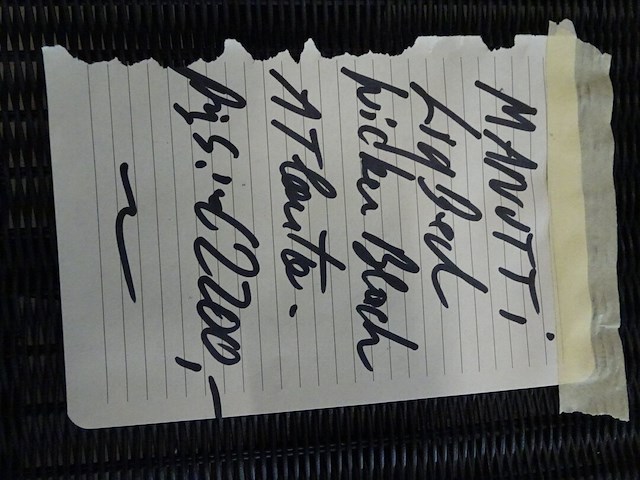 MANUTTI,
Lig Bed
wicker Black
ATlanta.
Prijs: € 2200,-